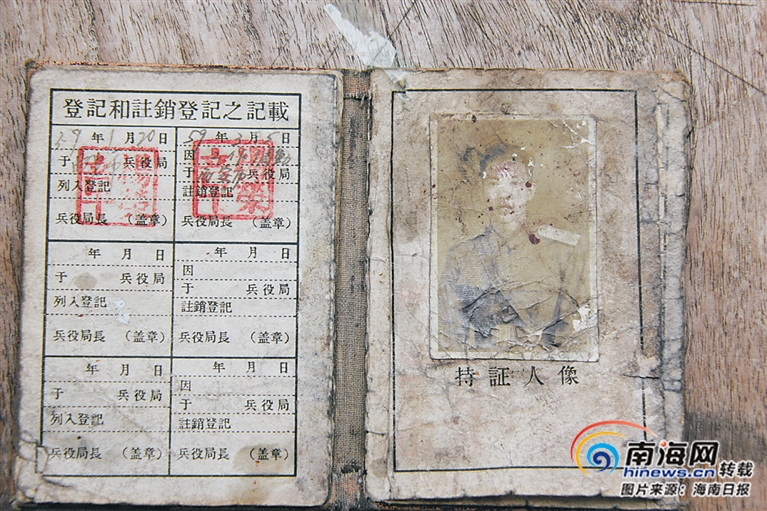 登記和註銷登記之記載
年1月20日
59年2月5日
于 兵役局
因
于 兵役局
列入登記
註銷登記
兵役局長 (盖章)
兵役局長 (盖章)
年 月 日
年 月 日
于 兵役局
因
于 兵役局
列入登記
註銷登記
兵役局長 (盖章)
兵役局長 (盖章)
年 月 日
因
于 兵役局
于 兵役局
列入登記
註銷登記
兵役局長 (盖章)
兵役局長 (盖章)
持証人像
南海网
hinews.cn 转载
图片来源：海南日报